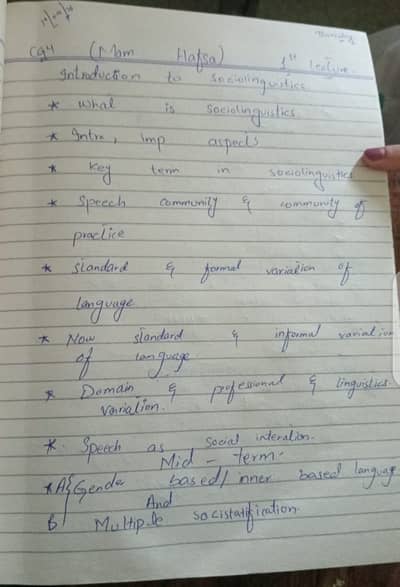 Thursday
(Mam Hafsa) 1st lecture.
Introduction to sociolinguistics.
* what is sociolinguistics
* Intro, imp aspects
* Key term in sociolinguistics
* Speech community & community of
practice
* standard & formal variation of
language
* Now standard & informal variation
of language
* Domain & professional & linguistics
variation.
* Speech as social interation.
Mid - term.
* A{ Genda based/inner based language
And
B Multiple socistatification.